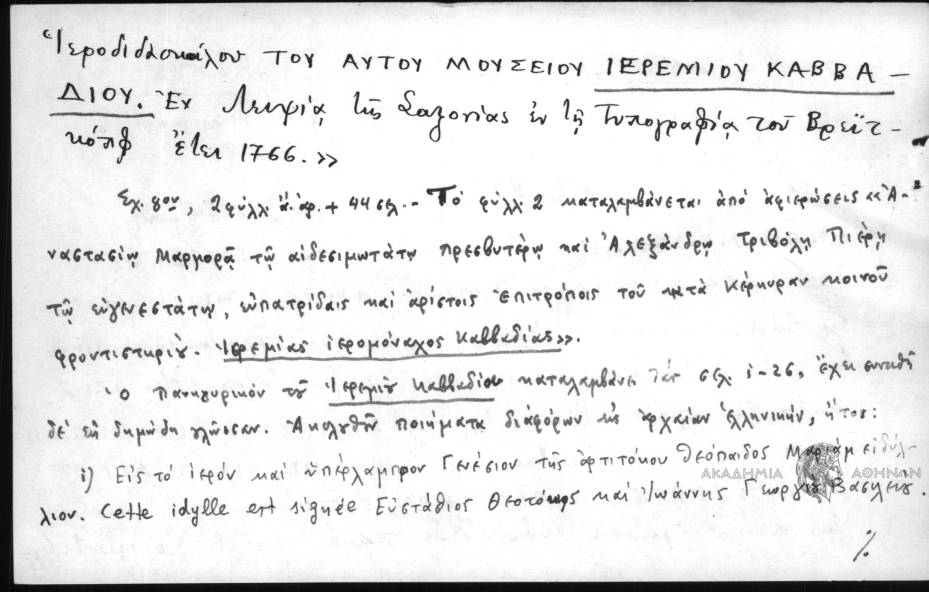 Ἱεροδιδασκάλου ΤΟΥ ΑΥΤΟΥ ΜΟΥΣΕΙΟΥ ΙΕΡΕΜΙΟΥ ΚΑΒΒΑ-
ΔΙΟΥ. Ἐν Λειψίᾳ τῆς Σαξονίας ἐν τῇ Τυπογραφίᾳ τοῦ Βρεϊτ-
κόπφ ἔτει 1766.»
Σχ. 8ον, 2 φύλλ. ἄ. ἀρ. + 44 σελ. - Τό φύλλ. 2 καταλαμβάνεται ἀπό ἀφιερώσεις «Ἀ-
ναστασίῳ Μαρμορᾷ τῷ αἰδεσιμωτάτῳ πρεσβυτέρῳ καί Ἀλεξάνδρῳ Τριβώλῃ Πιέρῃ
τῷ εὐγενεστάτῳ, εὐπατρίδαις καί ἀρίστοις ἐπιτρόποις τοῦ κατά Κέρκυραν κοινοῦ
φροντιστηρίου. Ἱερεμίας ἱερομόναχος Καββαδίας».
Ὁ Πανηγυρικόν τοῦ Ἱερεμίου Καββαδίου καταλαμβάνει τάς σελ. 1-26, ἔχει συντεθῆ
δέ εἰς δημώδη γλῶσσαν. Ἀκολουθοῦν ποιήματα διαφόρων εἰς ἀρχαίαν ἑλληνικήν, ἤτοι:
1) Εἰς τό ἱερόν καί ὑπέρλαμπρον Γενέσιον τῆς ἀρτιτόκου θεόπαιδος Μαριάμ εἰδύλ-
λιον. Cette idylle est signée Εὐστάθιος Θεοτόκης καί Ἰωάννης Γεωργίου Βασιλείου
ΑΚΑΔΗΜΙΑ ΑΘΗΝΩΝ
%